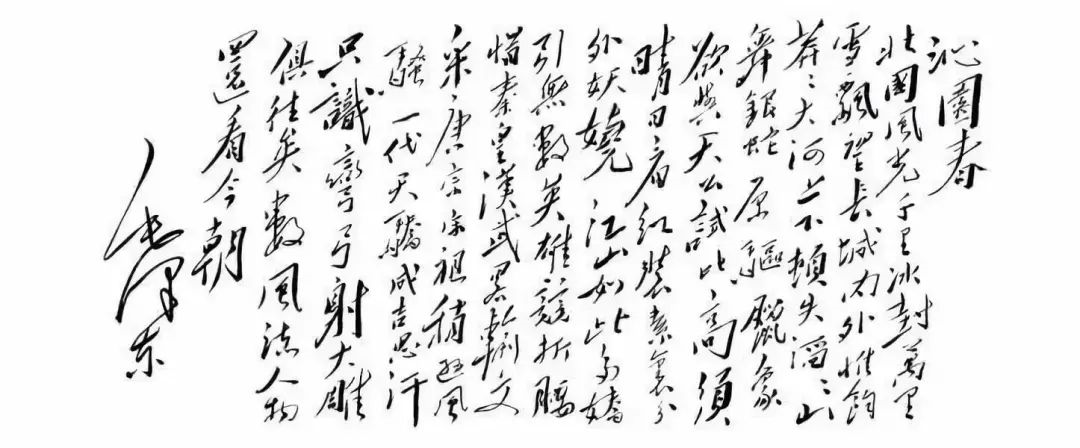 沁園春
北國風光千里冰封萬里
雪飄望長城内外惟餘
莽〻大河上下頓失滔〻山
舞銀蛇原驅臘象
欲與天公試比高須
晴日看紅裝素裹分
外妖嬈江山如此多嬌
引無數英雄競折腰
惜秦皇漢武略輸文
采唐宗宋祖稍遜風
騷一代天驕成吉思汗
只識彎弓射大雕
俱往矣數風流人物
還看今朝
毛澤東